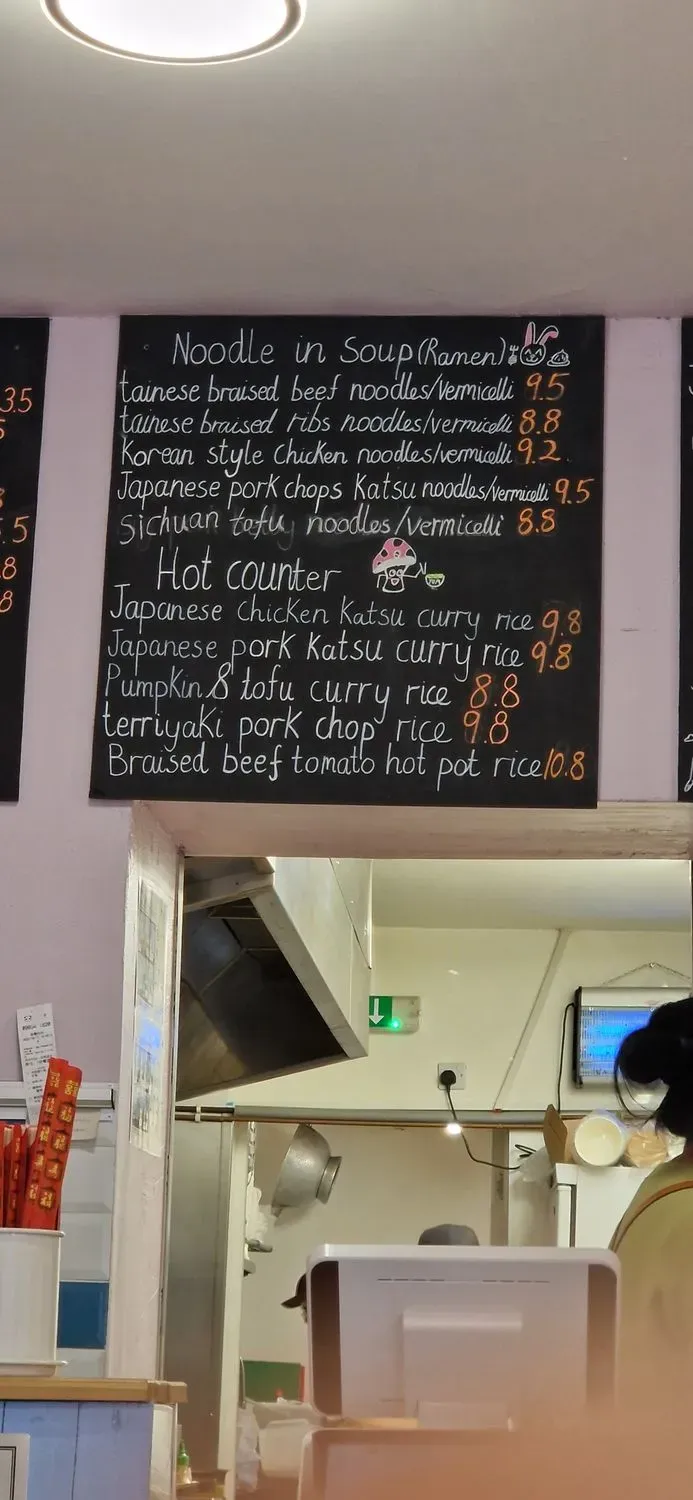 Noodle in Soup (Ramen)
tainese braised beef noodles/vermicelli 9.5
tainese braised ribs noodles/vermicelli 8.8
Korean style chicken noodles/vermicelli 9.2
Japanese pork chops Katsu noodles/vermicelli 9.5
Sichuan tofu noodles/vermicelli 8.8
Hot counter
Japanese chicken Katsu curry rice 9.8
Japanese pork Katsu curry rice 9.8
Pumpkin & tofu curry rice 8.8
terriyaki pork chop rice 9.8
Braised beef tomato hot pot rice 10.8
3.5